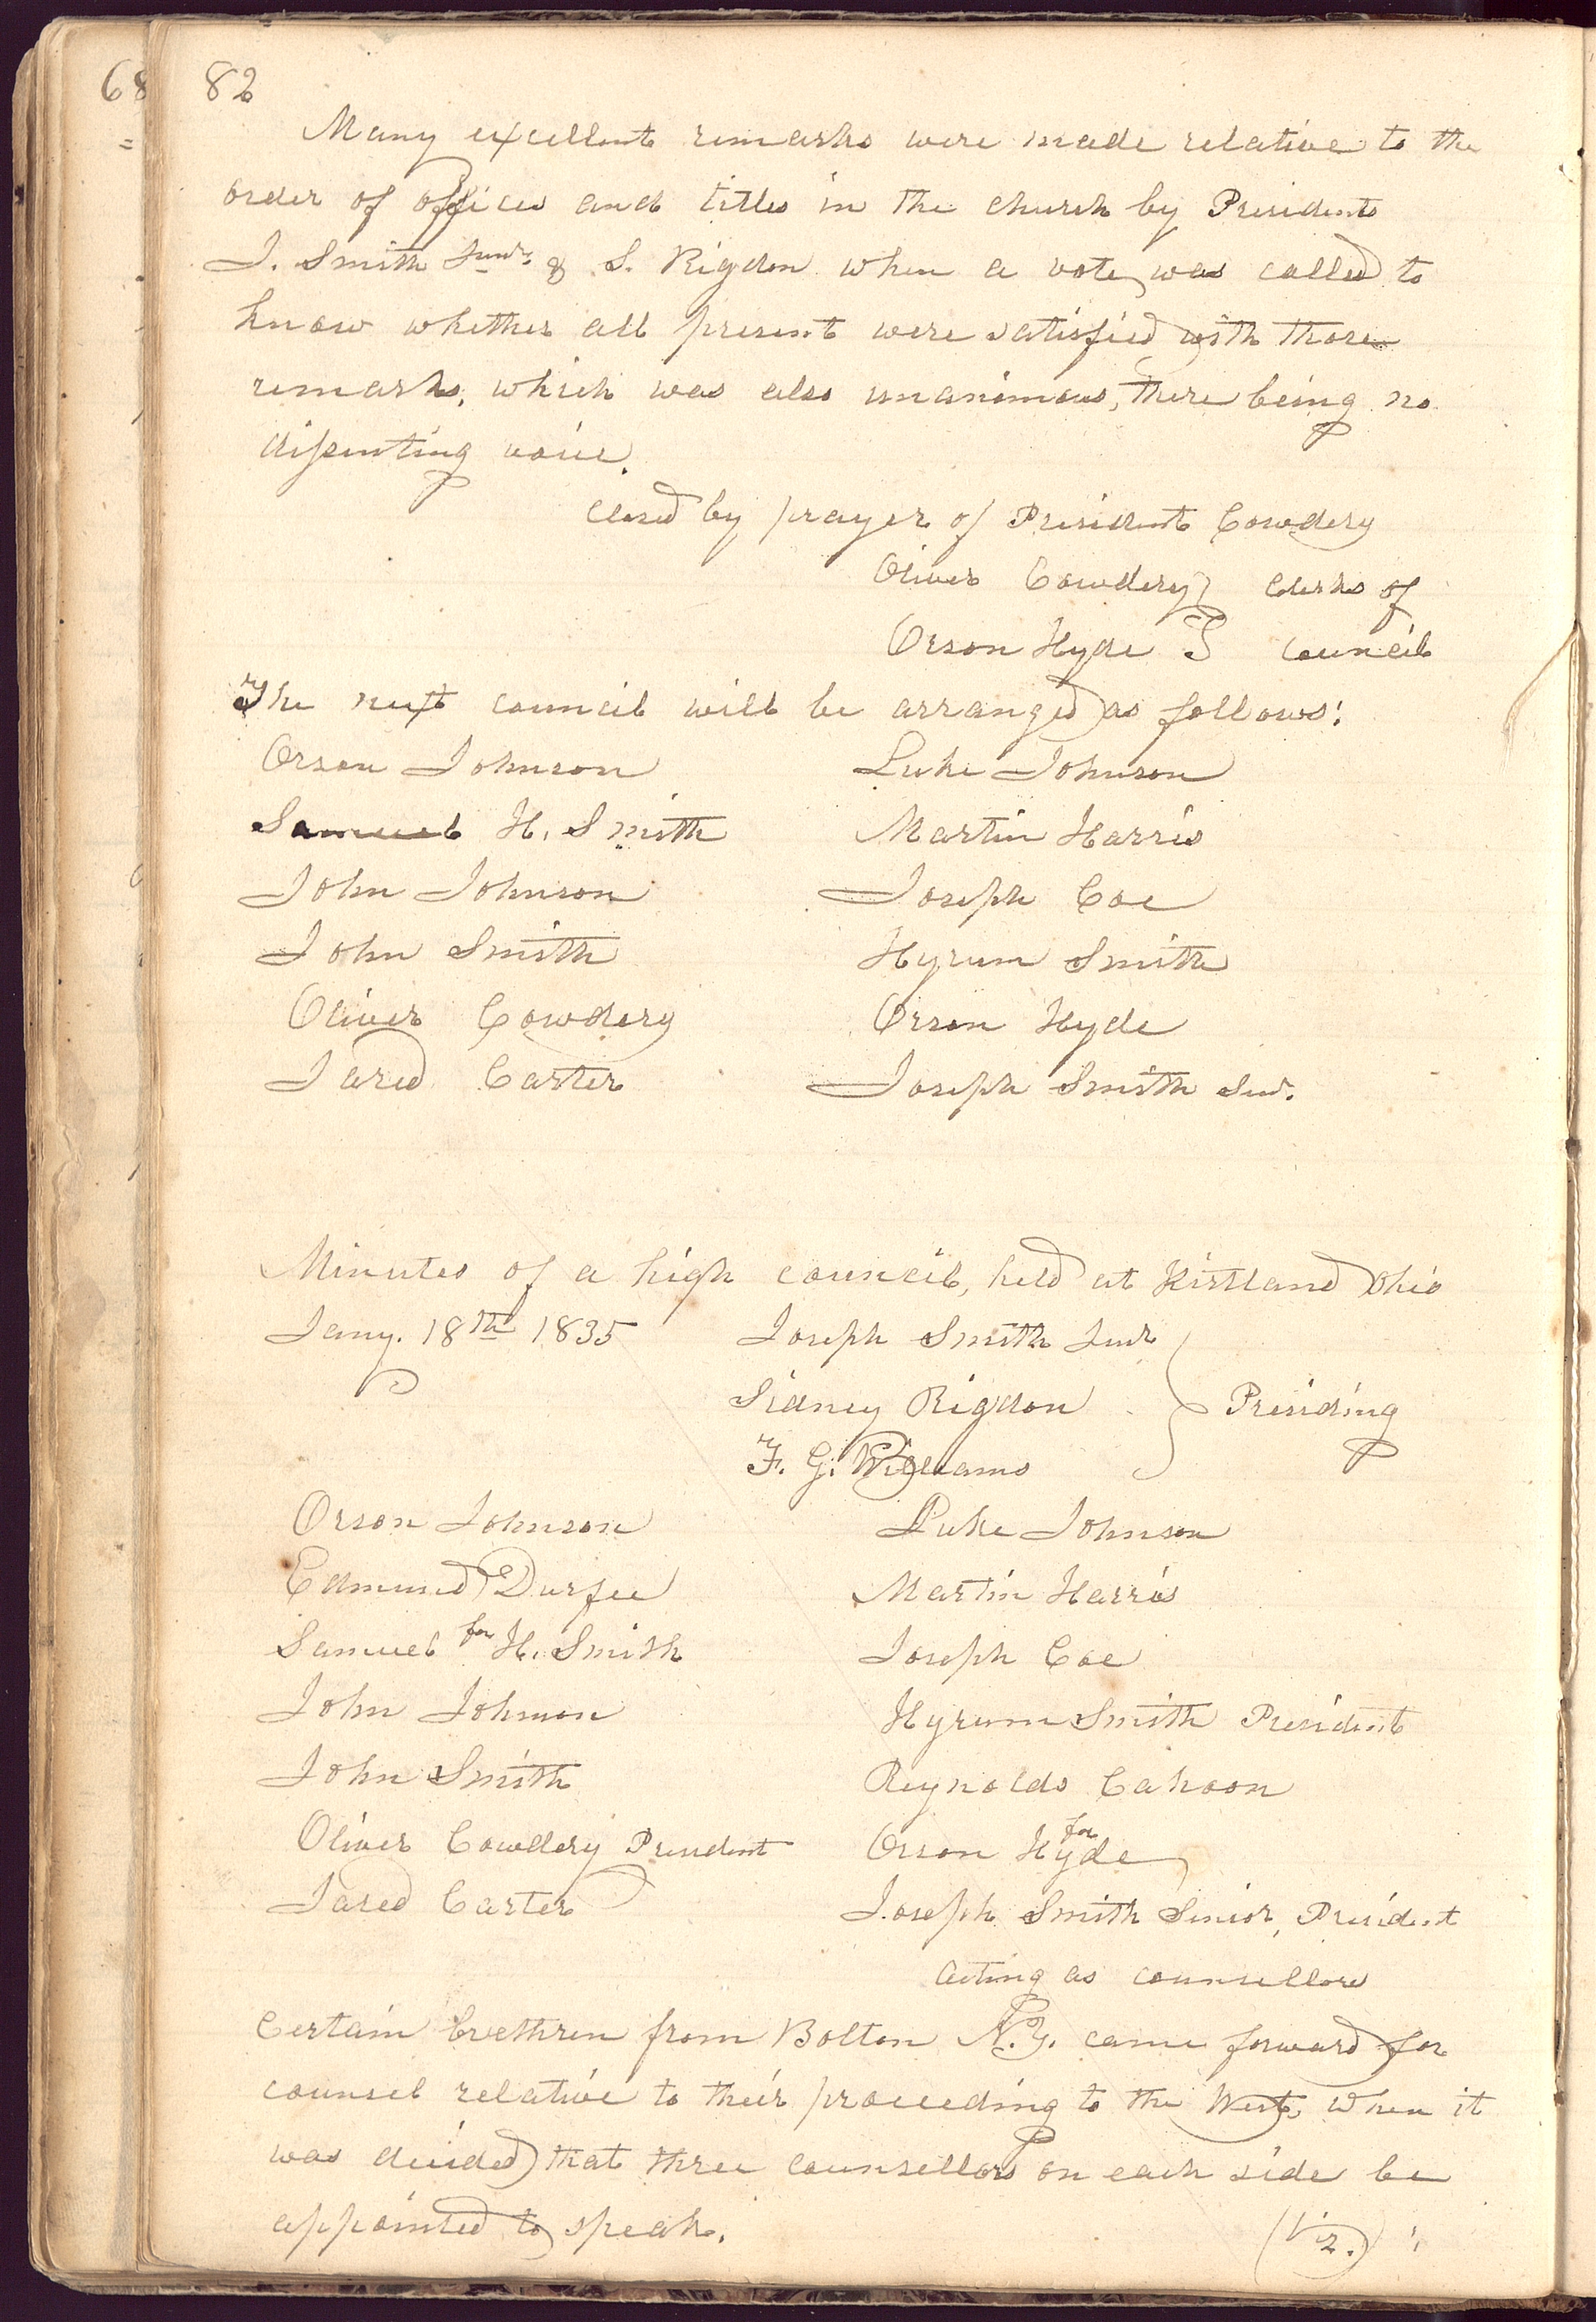 68
82
Many excellent remarks were made relative to the
order of offices and titles in the church by Presidents
J. Smith Junr. & S. Rigdon when a vote was called to
know whether all present were satisfied with those
remarks, which was also unanimous, there being no
dissenting voice.
Closed by prayer of President Cowdery
Oliver Cowdery } Clerks of
Orson Hyde } Council
The next council will be arranged as follows:
Orson Johnson Luke Johnson
Samuel H. Smith Martin Harris
John Johnson Joseph Coe
John Smith Hyrum Smith
Oliver Cowdery Orson Hyde
Jared Carter Joseph Smith Sen.
Minutes of a high council, held at Kirtland Ohio
Jany. 18th 1835 Joseph Smith Junr
Sidney Rigdon } Presiding
F. G. Williams
Orson Johnson Luke Johnson
Edmund Durfee Martin Harris
Samuel for H. Smith Joseph Coe
John Johnson Hyrum Smith President
John Smith Reynolds Cahoon
Oliver Cowdery President Orson for Hyde
Jared Carter Joseph Smith Senior, President
acting as counsellors
Certain brethren from Bolton N.Y. came forward for
counsel relative to their proceeding to the West, When it
was decided that three counsellors on each side be
appointed to speak. (Viz.) :